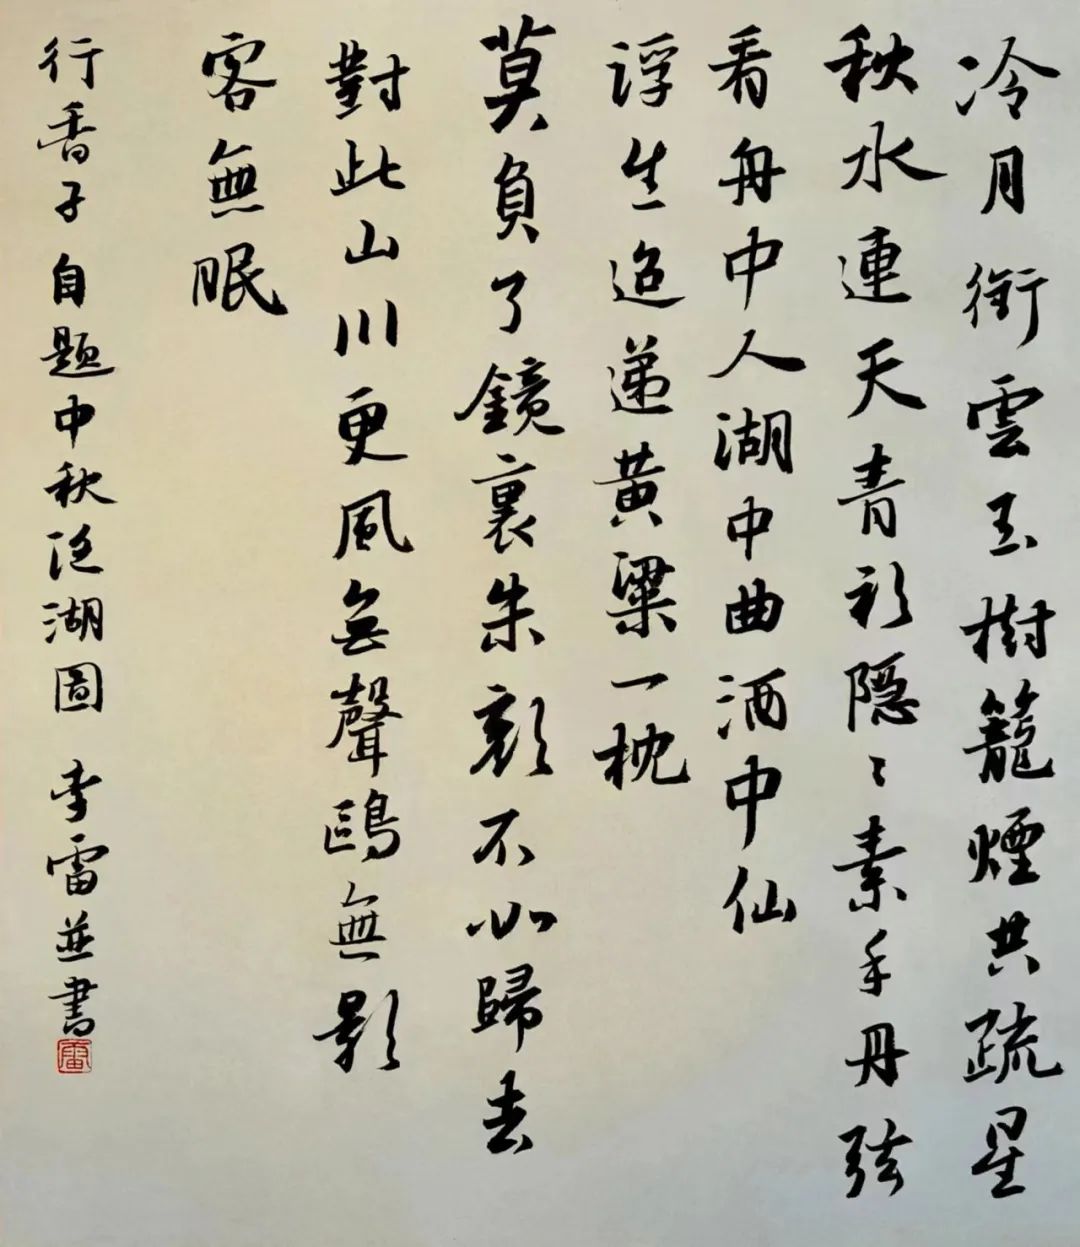 冷月銜雲玉樹籠煙共疏星
秋水連天青衫隱〻素手丹弦
看舟中人湖中曲酒中仙
浮生迢遞黃粱一枕
莫負了鏡裏朱顏不如歸去
對此山川更風無聲鷗無影
客無眠
行香子自題中秋泛湖圖 李雷並書